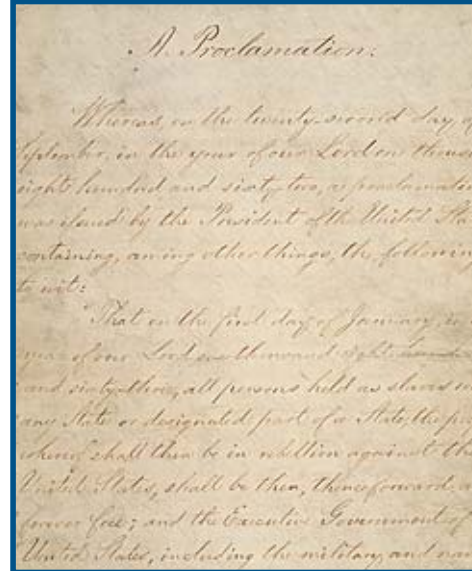 A Proclamation.
Whereas, on the twenty-second day of
September, in the year of our Lord one thous
eight hundred and sixty-two, a proclamatio
was issued by the President of the United Sta
containing, among other things, the following
to wit:
"That on the first day of January, in
year of our Lord one thousand eight hund
and sixty-three, all persons held as slaves
any State or designated part of a State, the pe
whereof shall then be in rebellion against the
United States, shall be then, thenceforward, a
forever free; and the Executive Government of
United States, including the military and nav